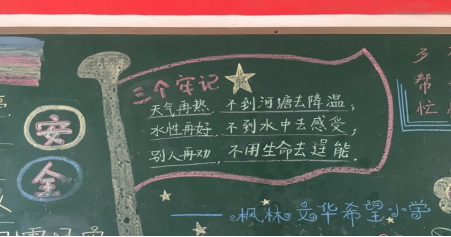 三个牢记
天气再热,不到河塘去降温;
水性再好,不到水中去感受;
别人再劝,不用生命去逞能.
安
全
——枫林文华希望小学
帮
忙